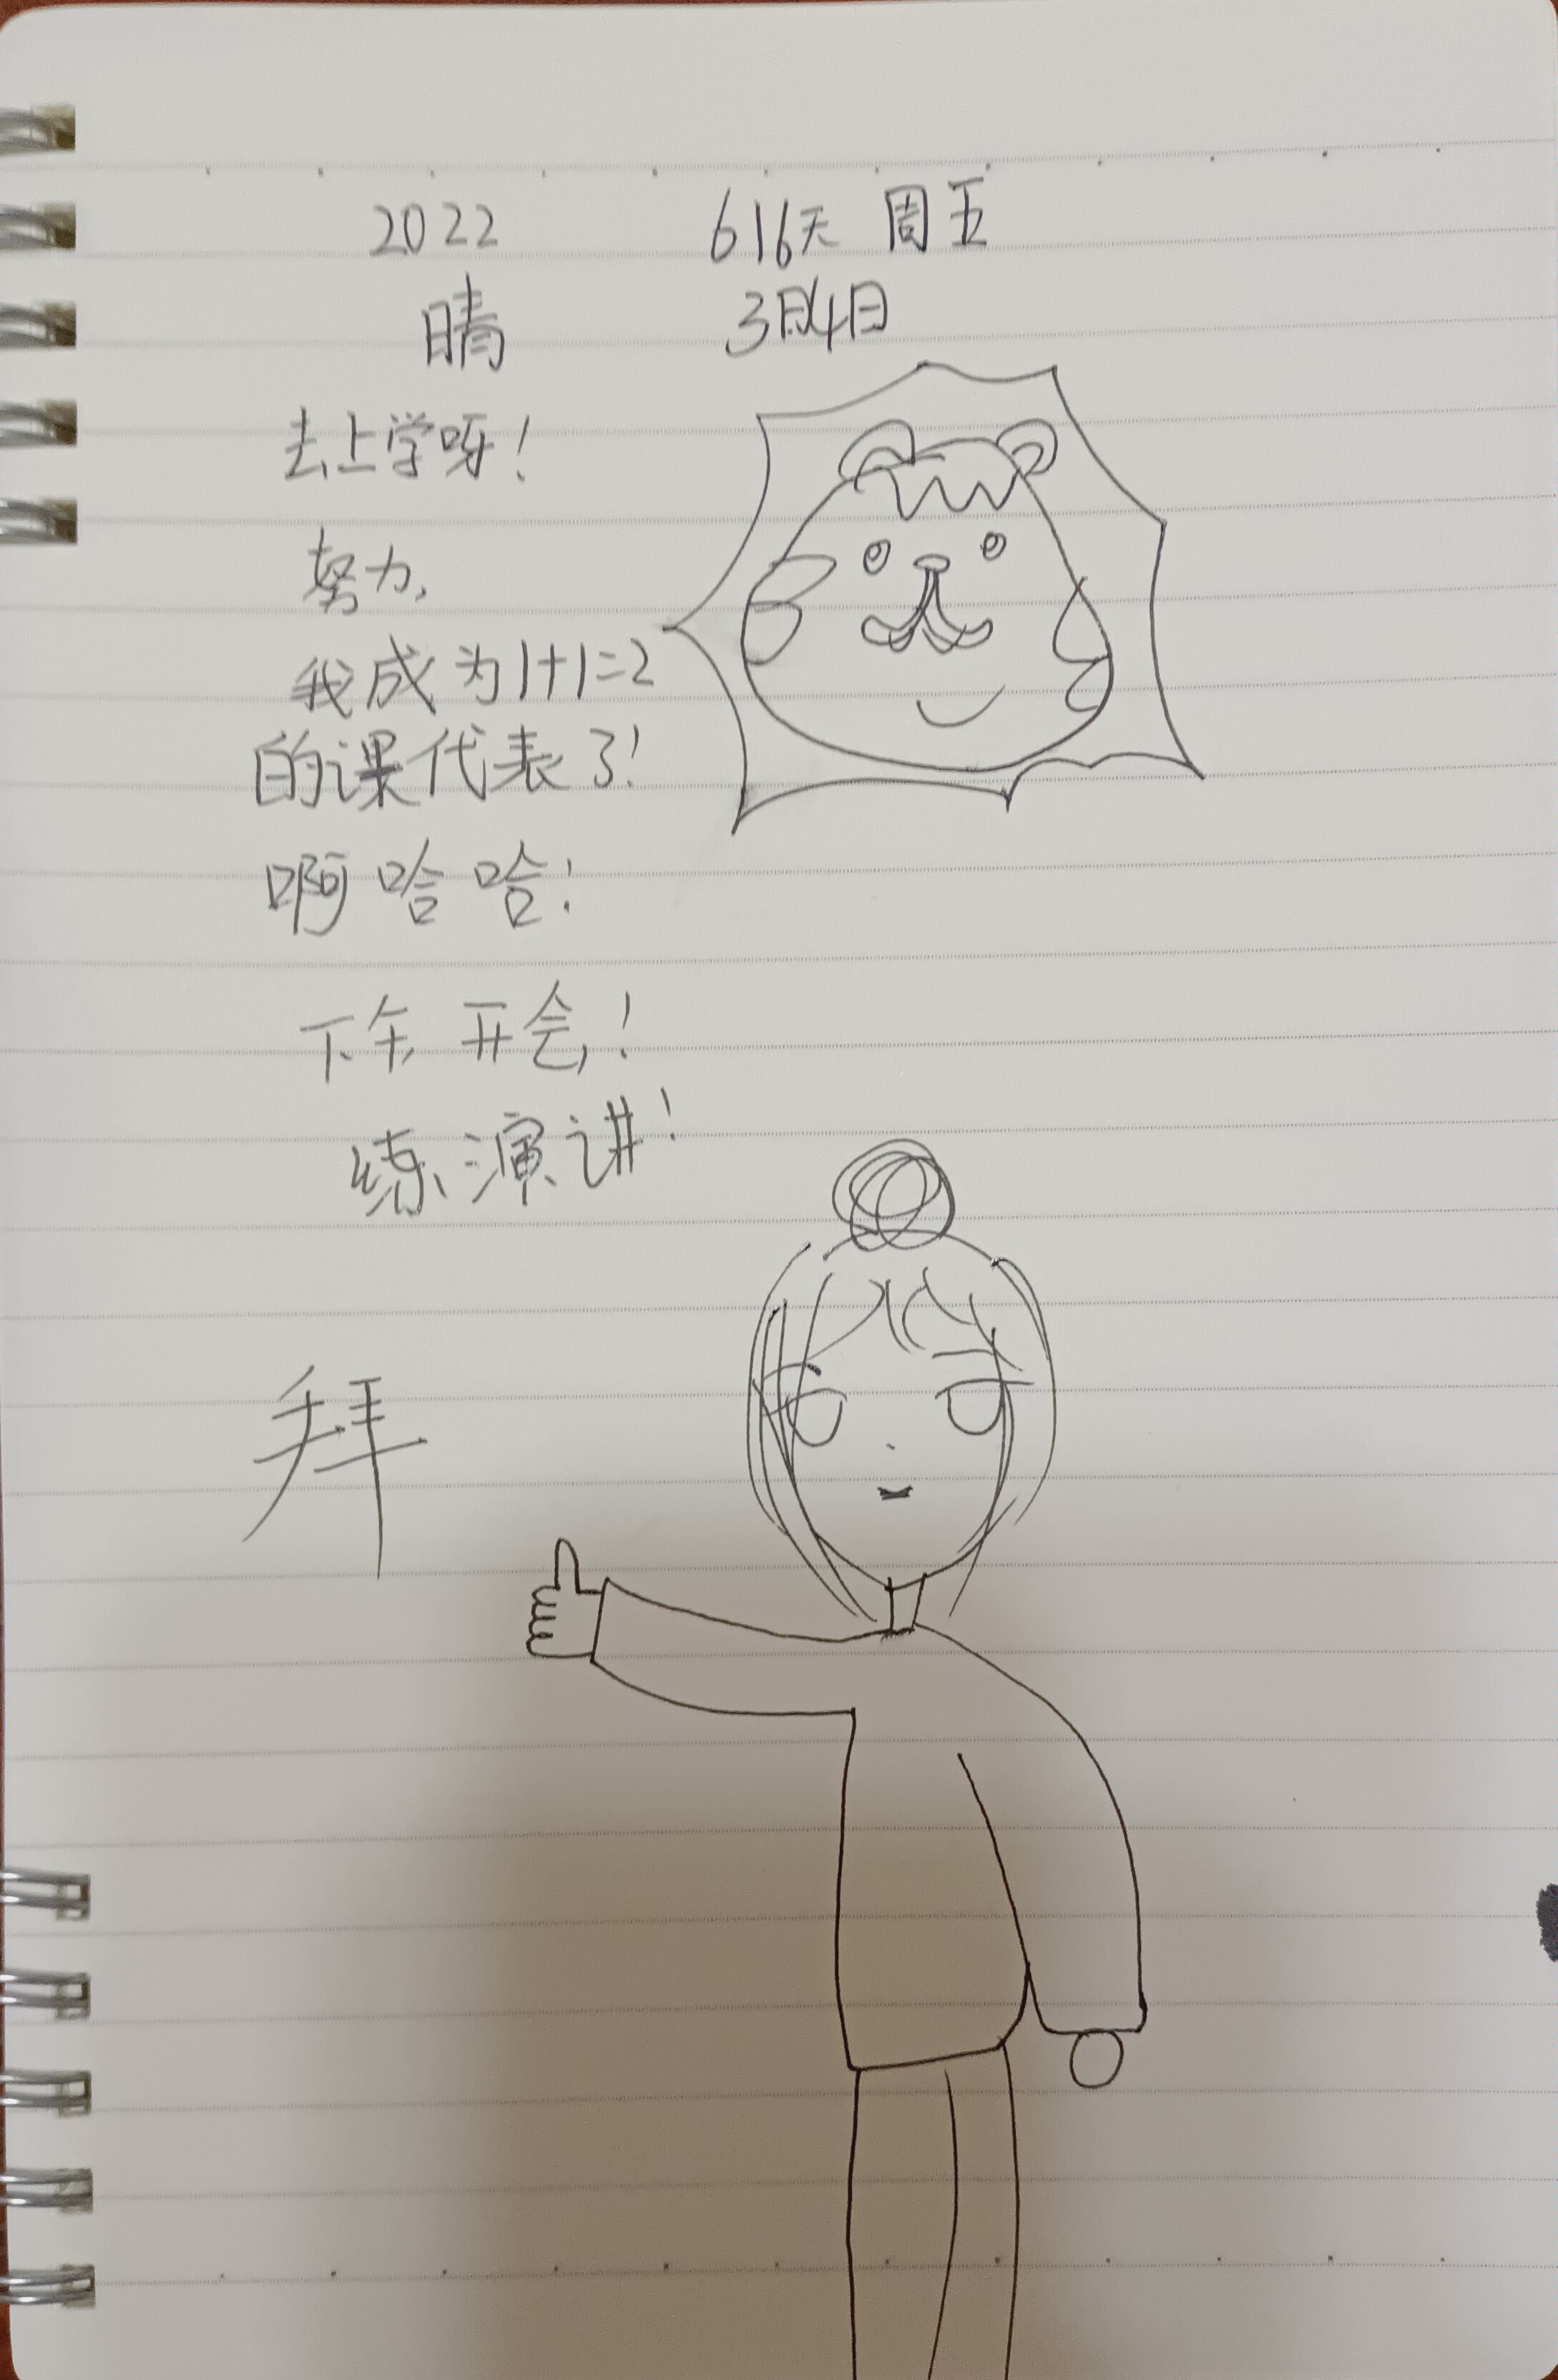 2022 616天 周五
晴 3月4日
去上学呀!
努力,
我成为1+1=2
的课代表了!
啊哈哈!
下午开会!
练演讲!
拜